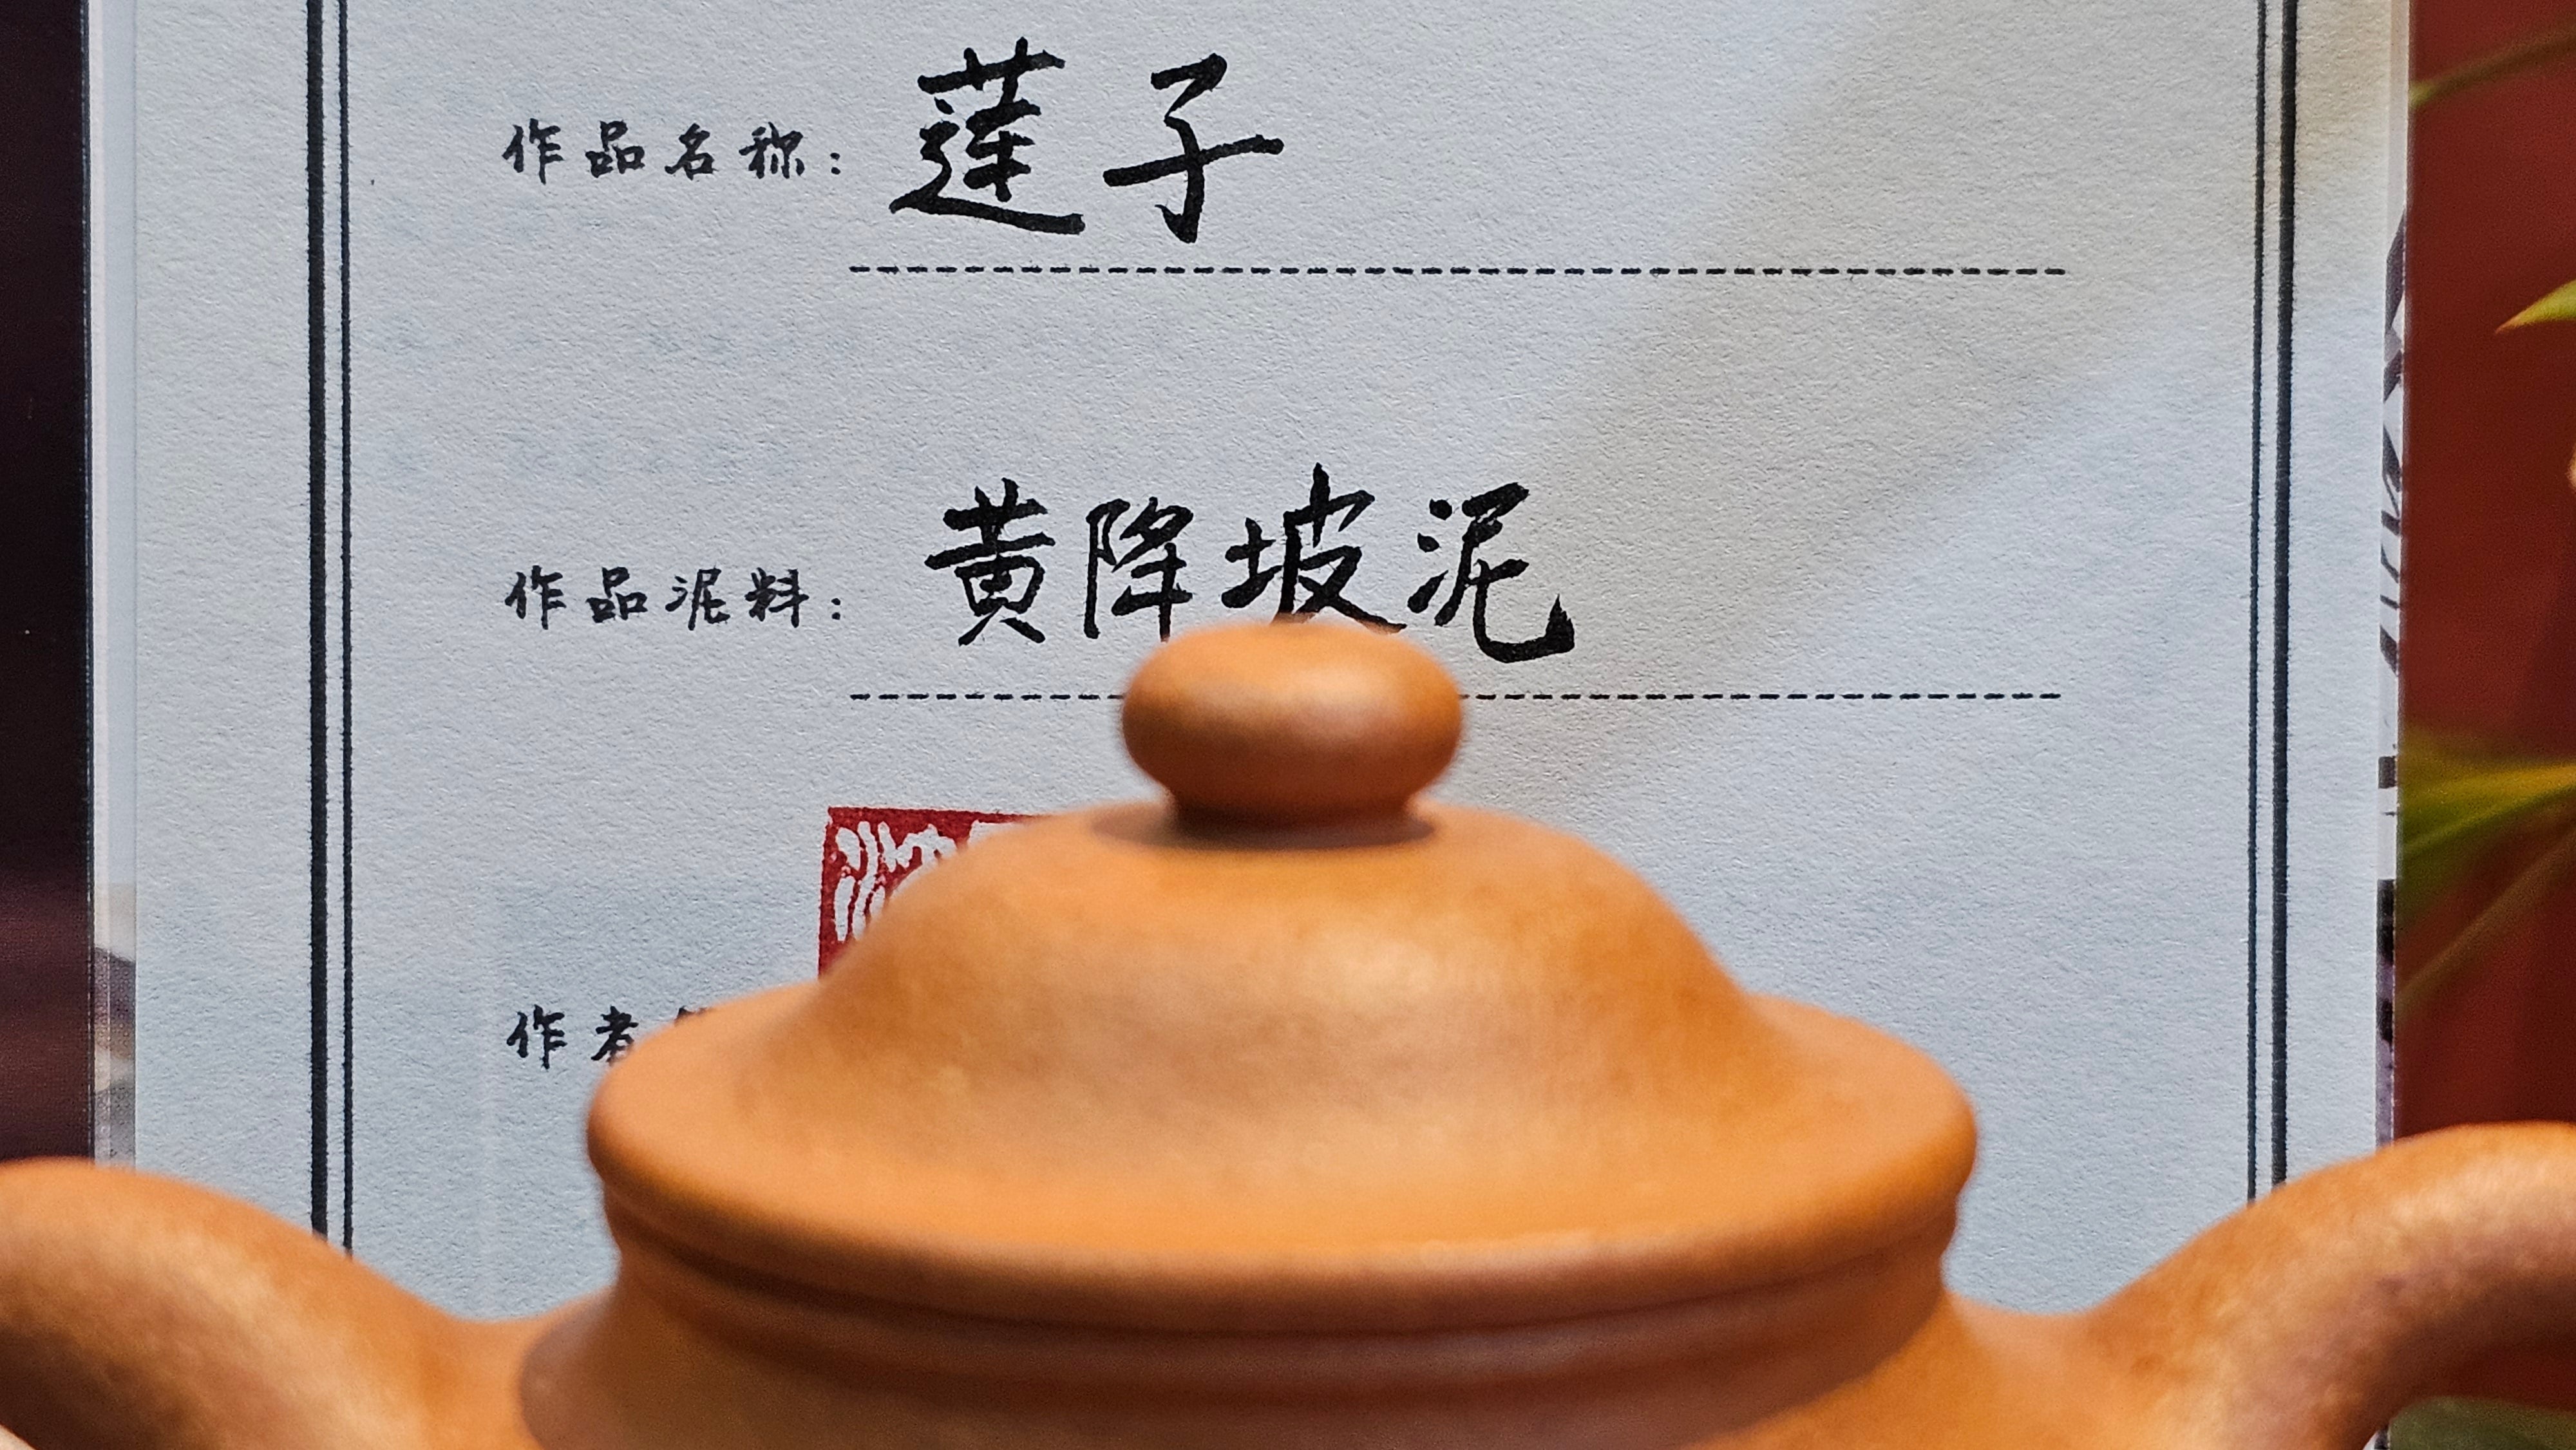 作品名称：蓮子
作品泥料：黄降坡泥
作者